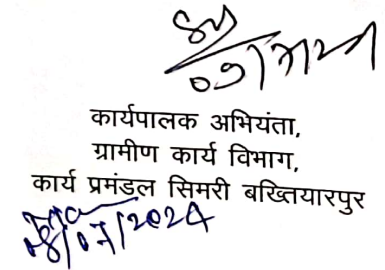 कार्यपालक अभियंता,
ग्रामीण कार्य विभाग,
कार्य प्रमंडल सिमरी बख्तियारपुर
08/07/2024